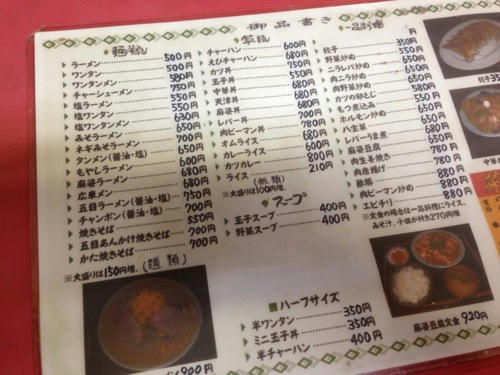 御品書き
麺類
ラーメン 500円
ワンタン 500円
ワンタンメン 580円
チャーシューメン 750円
塩ラーメン 550円
塩ワンタン 550円
塩ワンタンメン 630円
みそラーメン 650円
ネギみそラーメン 700円
タンメン(醤油・塩) 650円
もやしラーメン 600円
麻婆ラーメン 680円
広東メン 680円
五目ラーメン(醤油・塩) 750円
チャンポン(醤油・塩) 700円
焼きそば 550円
五目あんかけ焼きそば 700円
かた焼きそば 700円
※大盛りは150円増。(麺類)
飯類
チャーハン 600円
えびチャーハン 680円
カツ丼 750円
玉子丼 550円
中華丼 680円
天津丼 680円
麻婆丼 680円
レバー丼 700円
肉ピーマン丼 780円
オムライス 680円
カレーライス 600円
カツカレー 800円
ライス 210円
※大盛は100円増。(飯類)
スープ
玉子スープ 400円
野菜スープ 400円
■ハーフサイズ
半ワンタン 350円
ミニ玉子丼 350円
半チャーハン 400円
一品料理
餃子 350円
野菜炒め 550円
ニラレバ炒め
肉ニラ炒め
肉野菜炒め
カツの卵とじ
もつ煮込み
ホルモン炒め
八宝菜
レバーうま煮
麻婆豆腐
肉生姜焼き
肉唐揚げ
酢豚
肉ピーマン炒め
エビチリ
※定食の場合は一品料理にライス、
みそ汁、小鉢が付き270円増
餃子35
麻婆豆腐定食 920円
メン900円